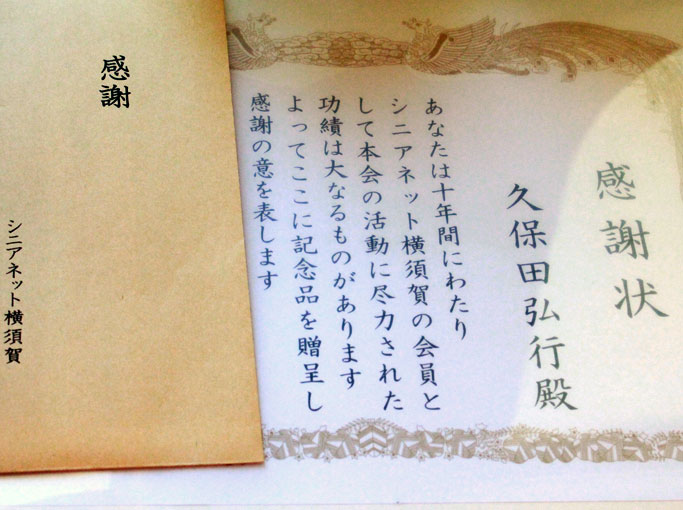 感謝状
久保田弘行殿
あなたは十年間にわたり
シニアネット横須賀の会員と
して本会の活動に尽力された
功績は大なるものがあります
よってここに記念品を贈呈し
感謝の意を表します
感謝
シニアネット横須賀